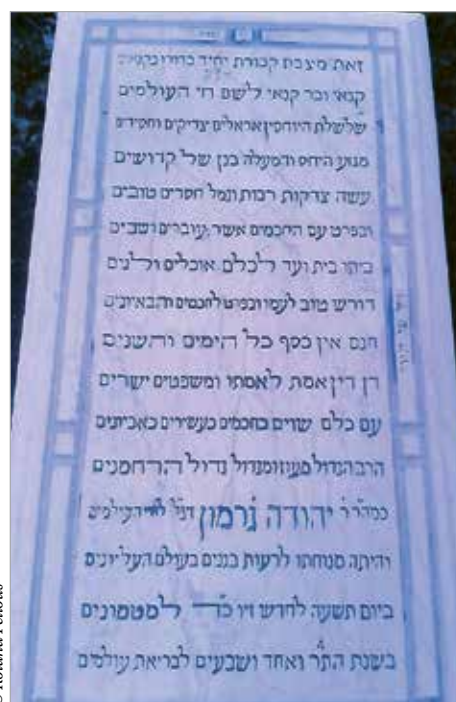 זאת מצבת קבורת יחיד בדורו
קנאי ובר קנאי לשם חי העולמים
שלשלת היוחסין אראלים צדיקים וחסידים
מגזע היחס והמעלה בנן של קדושים
עשה צדקות רבות וגמל חסדים טובים
ובפרט עם החכמים אשר עוברים ושבים
ביתו בית ועד לכלם אוכלים ולנים
דורש טוב לעמו ובפרט לחכמים והבאיונים
חנם אין כסף כל הימים והשנים
דן דין אמת לאמתו ומשפטים ישרים
עם כלם שוים כחכמים כעשירים כאביונים
הרב הגדול מעוז ומגדול גדול הרחמנים
כמהר״ר יהודה נרמון
והיתה מנוחתו לרעות בגנים בעולם העליונים
ביום תשעה לחדש זיו כ״ד למטמונים
בשנת התר ואחד ושבעים לבריאת עולמים
© Roland Fellous